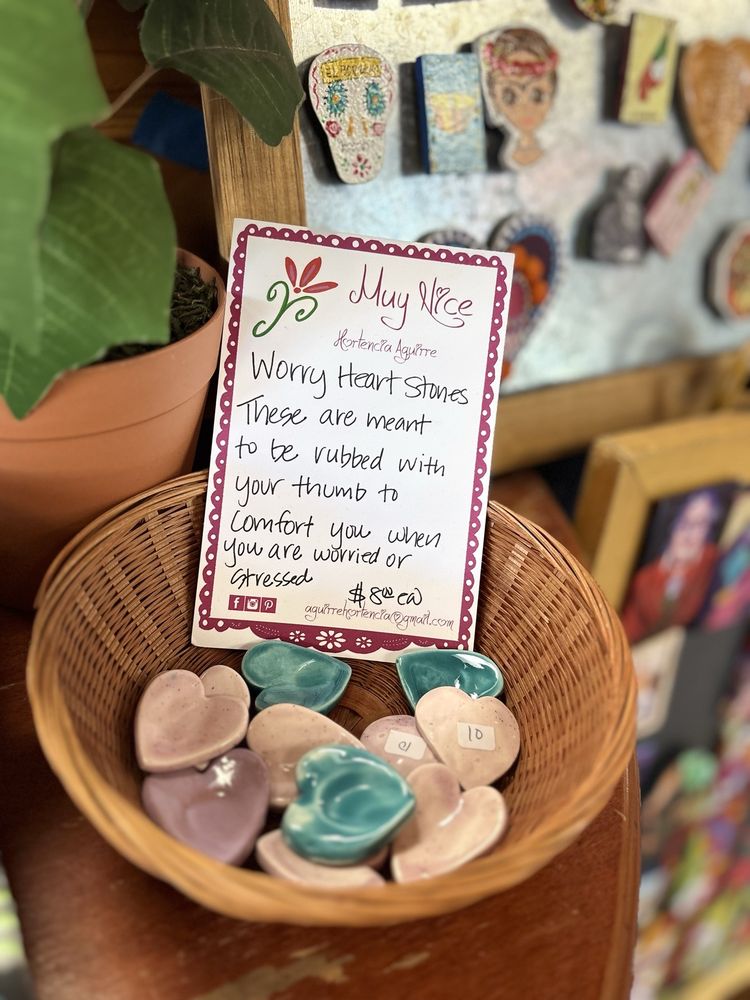 Muy Nice
Hortencia Aguirre
Worry Heart Stones
These are meant
to be rubbed with
your thumb to
comfort you when
you are worried or
stressed
$8.00 ea
aguirrehortencia@gmail.com
10